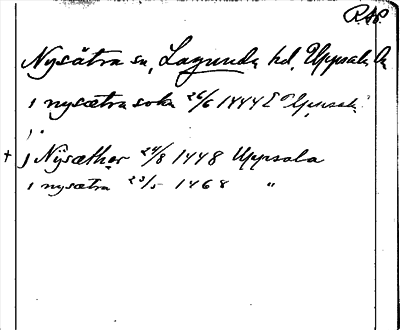 RAP.
Nysätra sn, Lagunda hd, Uppsala län
i nysætra sokn 26/6 1444 Uppsala
i
+ j Nysæther 24/8 1448 Uppsala
i nysætra 23/5 1468 "